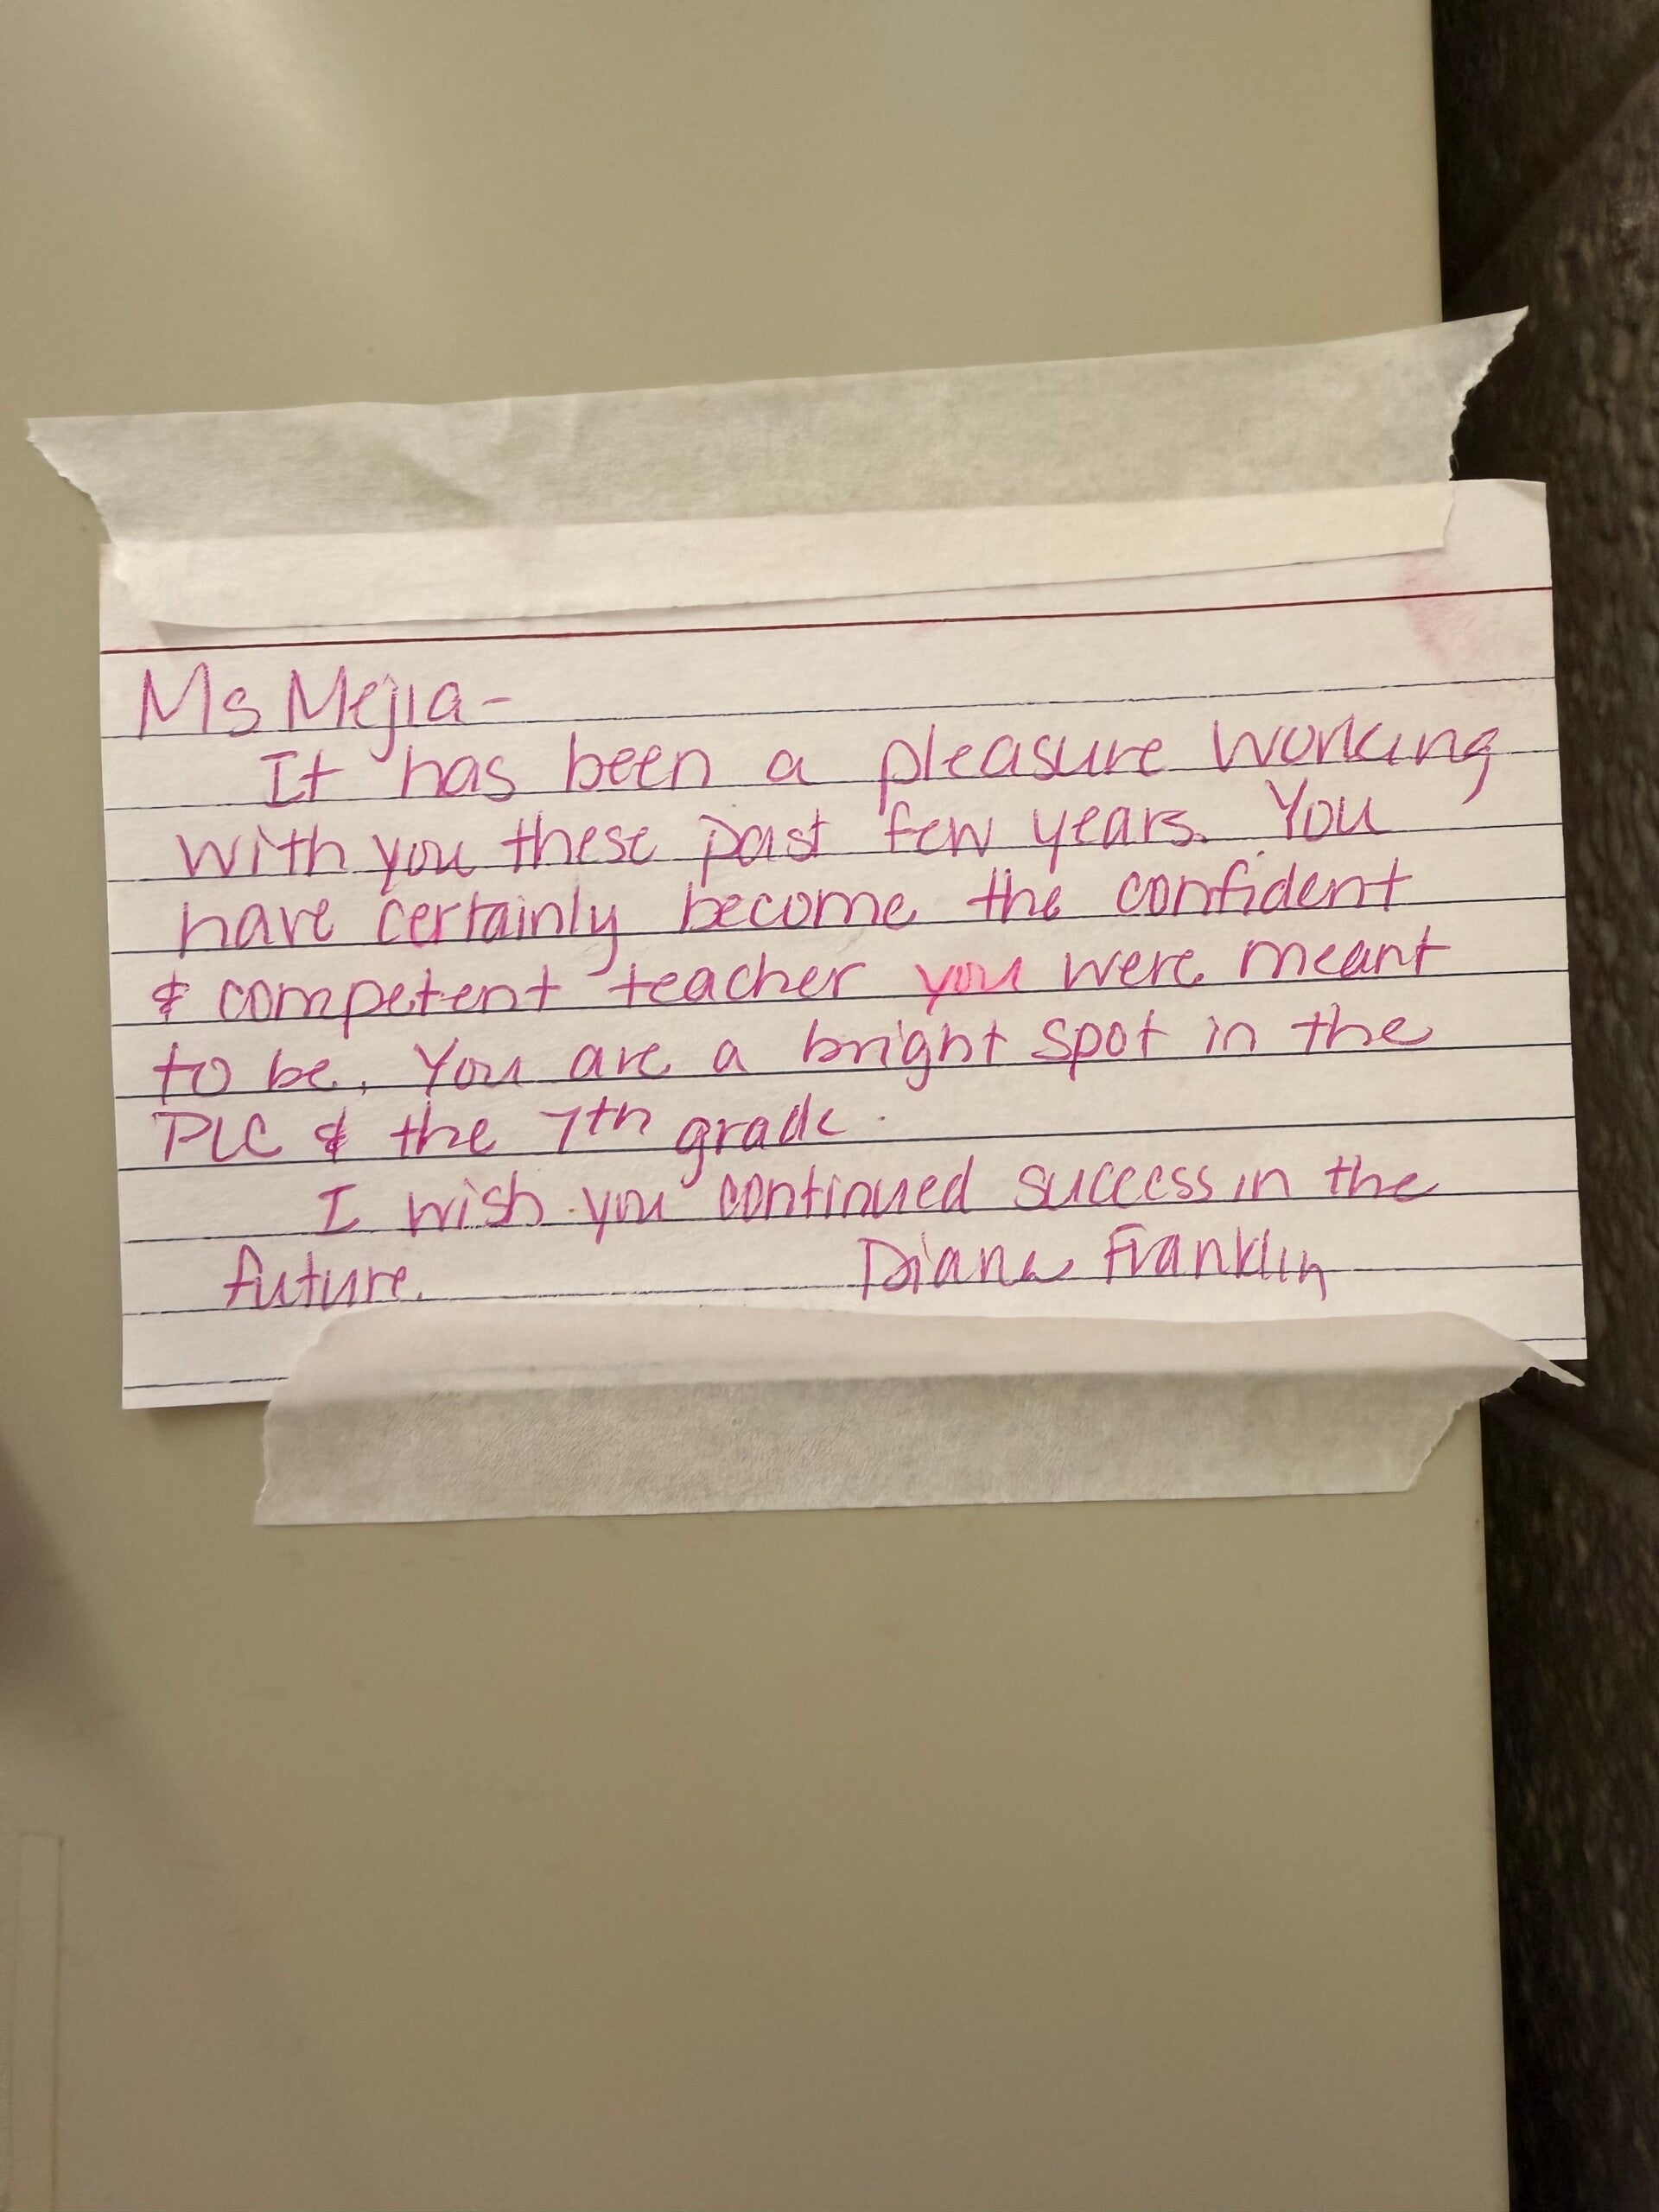 Ms Mejia-
It has been a pleasure working
with you these past few years. You
have certainly become the confident
& competent teacher you were meant
to be. You are a bright spot in the
PLC & the 7th grade.
I wish you continued success in the
future. Diane Franklin